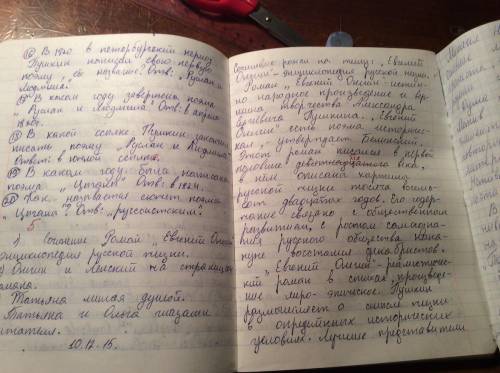 ⑯ В 1820 в петербургский период
Пушкин написал свою первую
поэму, её название? Отв: „Руслан и
Людмила".
⑰ В каком году завершена поэма
„Руслан и Людмила" Отв: В апреле
1820г.
⑱ В какой ссылке Пушкин закончил
писать поэму „Руслан и Людмила"
Ответ: в южной ссылке.
⑲ В каком году была написана
поэма „Цыгане" Отв: в 1824.
⑳ Как называется сюжет поэмы
„Цыгане"? Отв: „руссоистским".
5
1) Сочинение Роман „Евгений Онегин"
энциклопедия русской жизни.
Онегин и Ленский на страницах
романа.
Татьяна милая душой.
Татьяна и Ольга глазами
читателя.
10.12.15.
Сочинение роман на тему: „Евгений
Онегин" – энциклопедия русской жизни.
Роман „Евгений Онегин" – истин-
но народное произведение и ве-
ршина творчества Александра
Сергеевича Пушкина. „Евгений
Онегин" есть поэма историчес-
кая", – утверждает Белинский.
Этот роман писался в первой
половине девятнадцатого века.
В нём описана картина
русской жизни тысяча восемь-
сот двадцатых годов. Его содер-
жание связано с общественным
развитием, с ростом самосозна-
ния русского общества нака-
нуне восстания декабристов.
„Евгений Онегин" – реалистичес-
кий роман в стихах, произведе-
ние лиро-эпическое. Пушкин
размышляет о смысле жизни
в определённых исторических
условиях. Лучшие представители